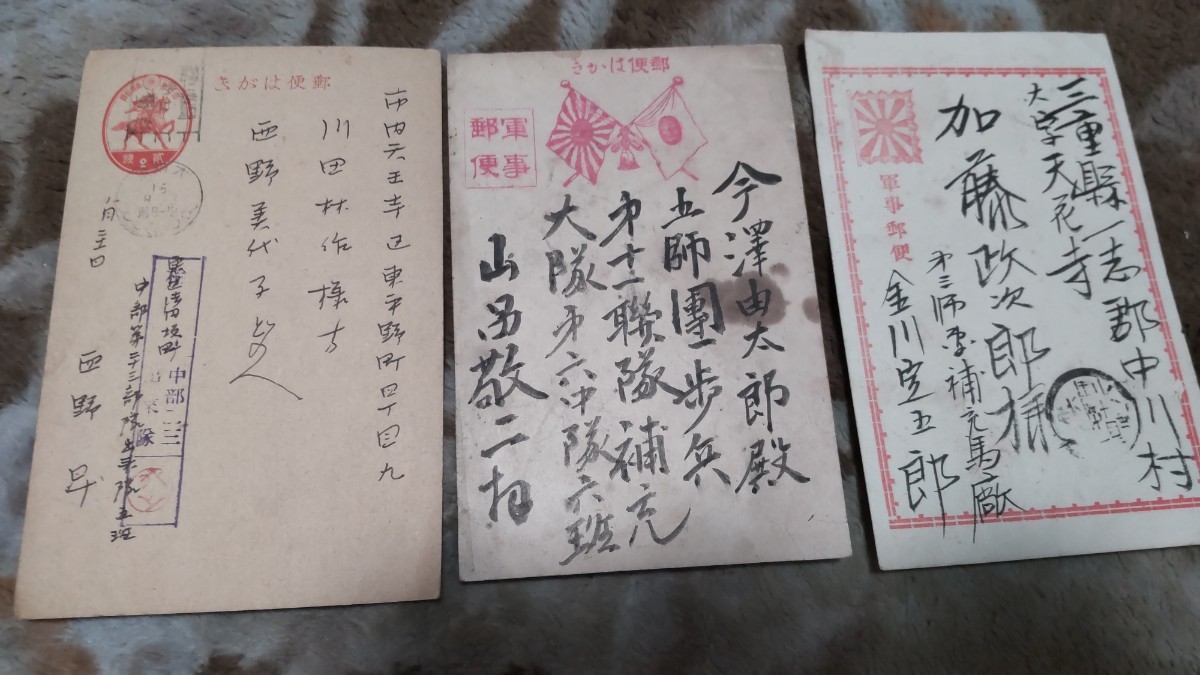 郵便はがき
市内天王寺区東平野町四丁目九
川田林作様方
西野美代子どのへ
八月三十日
中部第二十三部隊
西野
中部二三
貳
銭
16
郵便はがき
軍事
郵便
今澤由太郎殿
五師團歩兵
第十一聯隊補充
大隊第六中隊六班
山呂敬二拍
三重縣一志郡中川村
大字天花寺
加藤政次郎様
軍事郵便
第三師團補充馬廠
金川定五郎